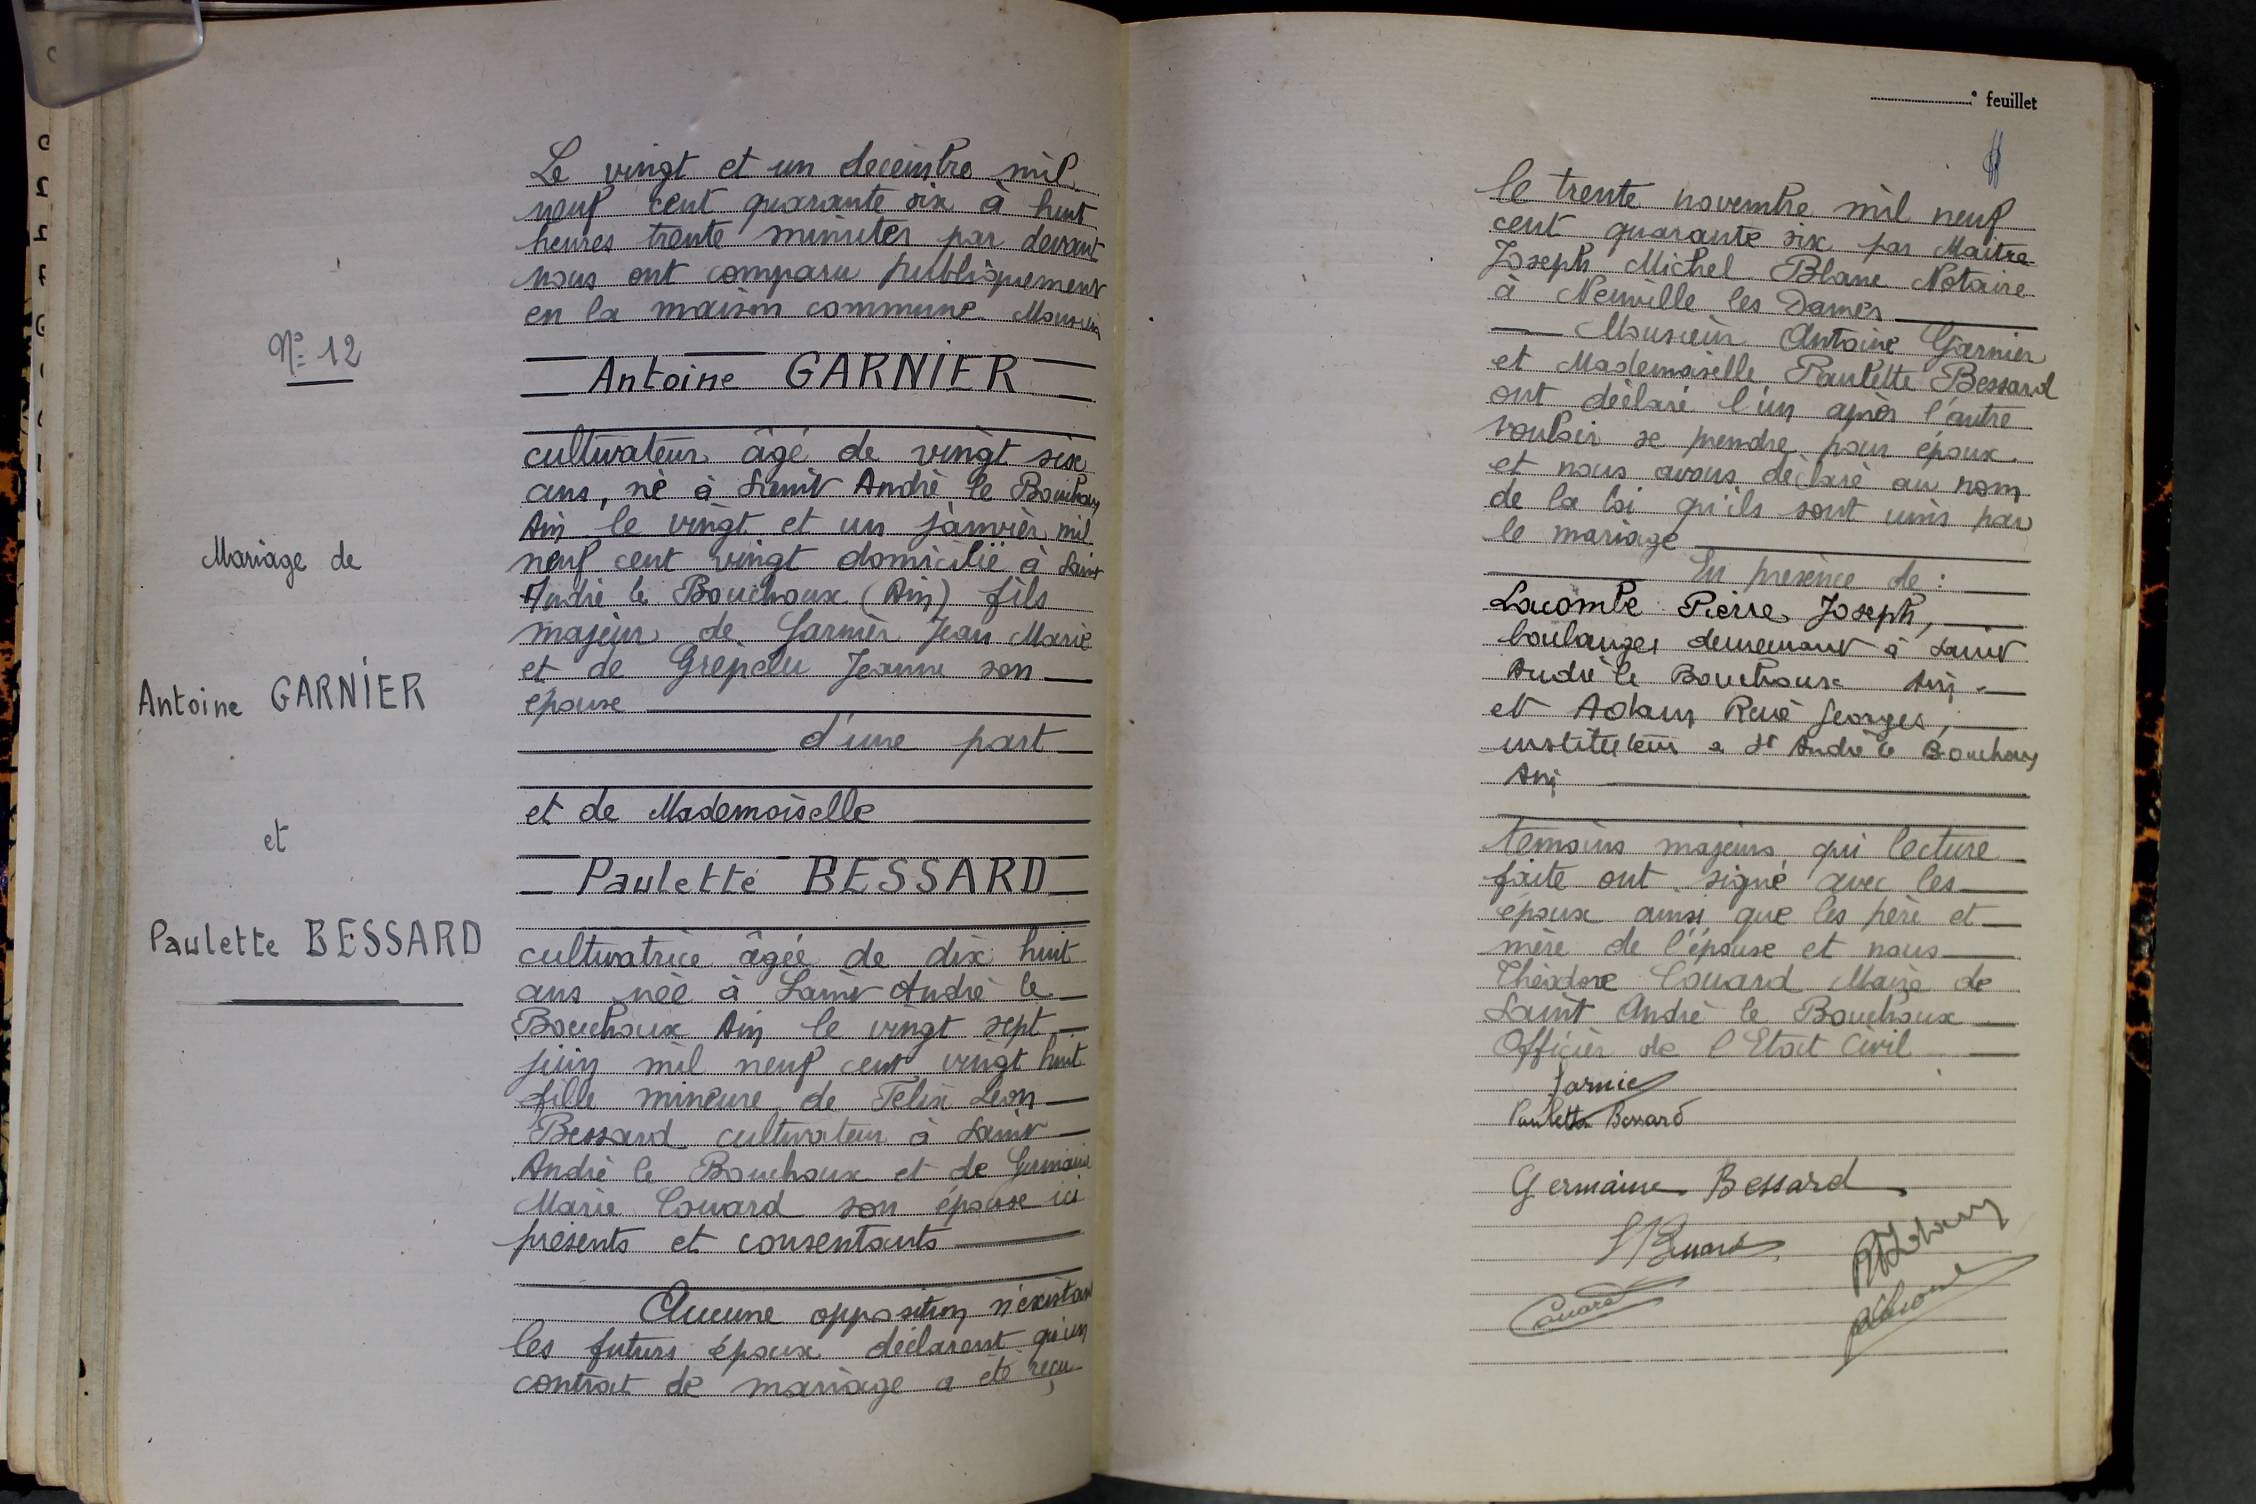 N° 12
Mariage de
Antoine GARNIER
et
Paulette BESSARD
Le vingt et un decembre mil
neuf cent quarante six à huit
heures trente minutes par devant
nous ont comparu publiquement
en la maison commune Monsieur
Antoine GARNIER
cultivateur âgé de vingt six
ans, né à Saint André le Bouchoux
Ain le vingt et un janvier mil
neuf cent vingt domicilié à Saint
André le Bouchoux (Ain) fils
majeur de Garnier Jean Marie
et de Jeanne son
épouse
d'une part
et de Mademoiselle
Paulette BESSARD
cultivatrice âgée de dix huit
ans née à Saint André le
Bouchoux Ain le vingt sept
juin mil neuf cent vingt huit
fille mineure de Félix Léon
Bessard cultivateur à Saint
André le Bouchoux et de Germaine
Marie Couard son épouse ici
présents et consentants
Aucune opposition n'existant
les futurs époux déclarent qu'un
contrat de mariage a été reçu
° feuillet
le trente novembre mil neuf
cent quarante six par Maitre
Joseph Michel Blanc Notaire
à Neuville les Dames
Monsieur Antoine Garnier
et Mademoiselle Paulette Bessard
ont déclaré l'un après l'autre
vouloir se prendre pour époux
et nous avons déclaré au nom
de la loi qu'ils sont unis par
le mariage
En présence de :
Lacombe Pierre Joseph,
boulanger demeurant à Saint
André le Bouchoux Ain
et Adam René Georges,
instituteur à St André le Bouchoux
Ain
témoins majeurs qui lecture
faite ont signé avec les
époux ainsi que les père et
mère de l'épouse et nous
Théodore Couard Maire de
Saint André le Bouchoux
Officier de l'Etat Civil
Garnier
Paulette Bessard
Germaine Bessard
Couard